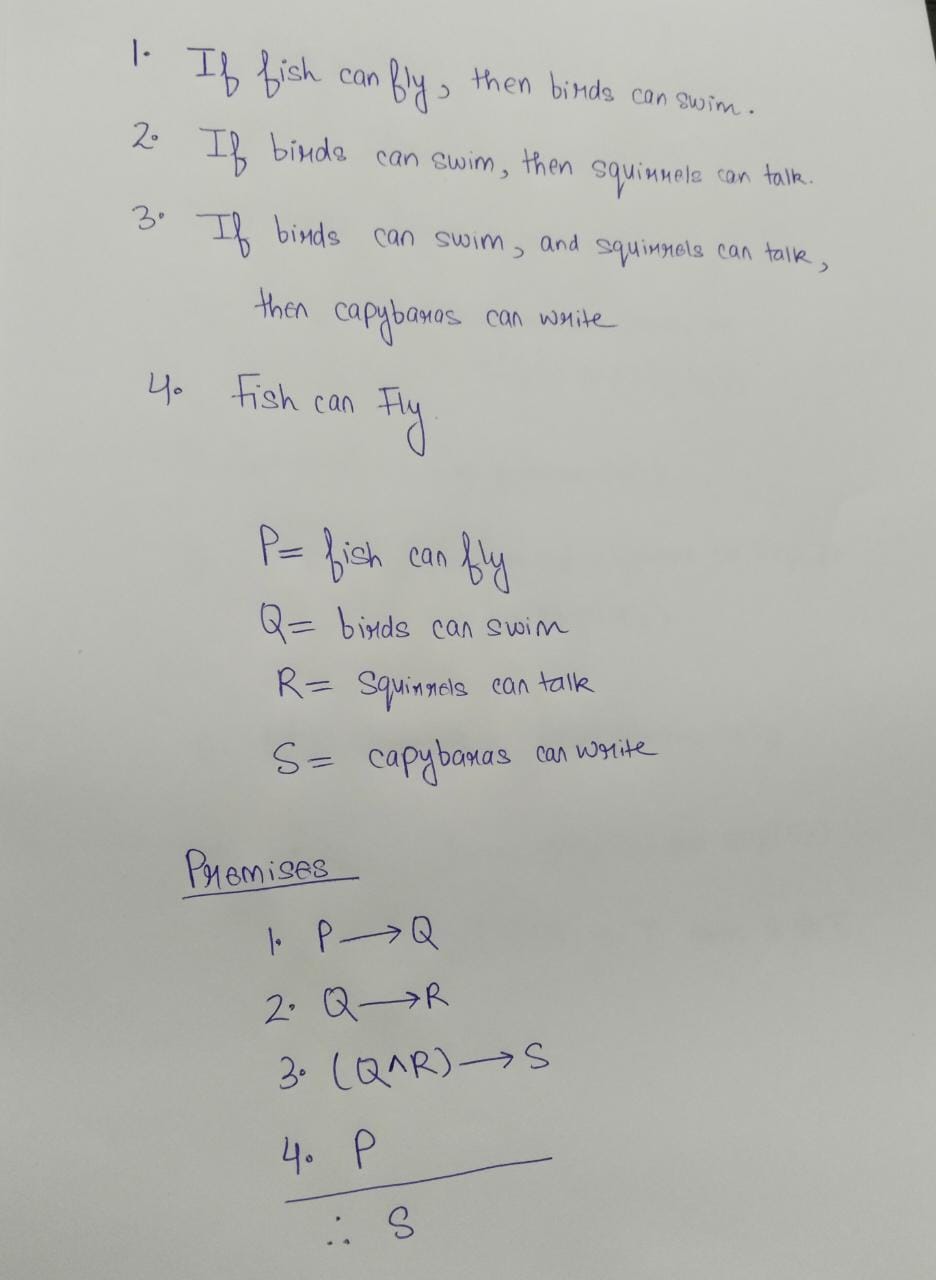 1. If fish can fly, then birds can swim.
2. If birds can swim, then squirrels can talk.
3. If birds can swim, and squirrels can talk,
then capybaras can write
4. Fish can Fly.
P= fish can fly
Q= birds can swim
R= Squirrels can talk
S= capybaras can write
Premises
1. P→Q
2. Q→R
3. (Q∧R)→S
4. P
∴ S